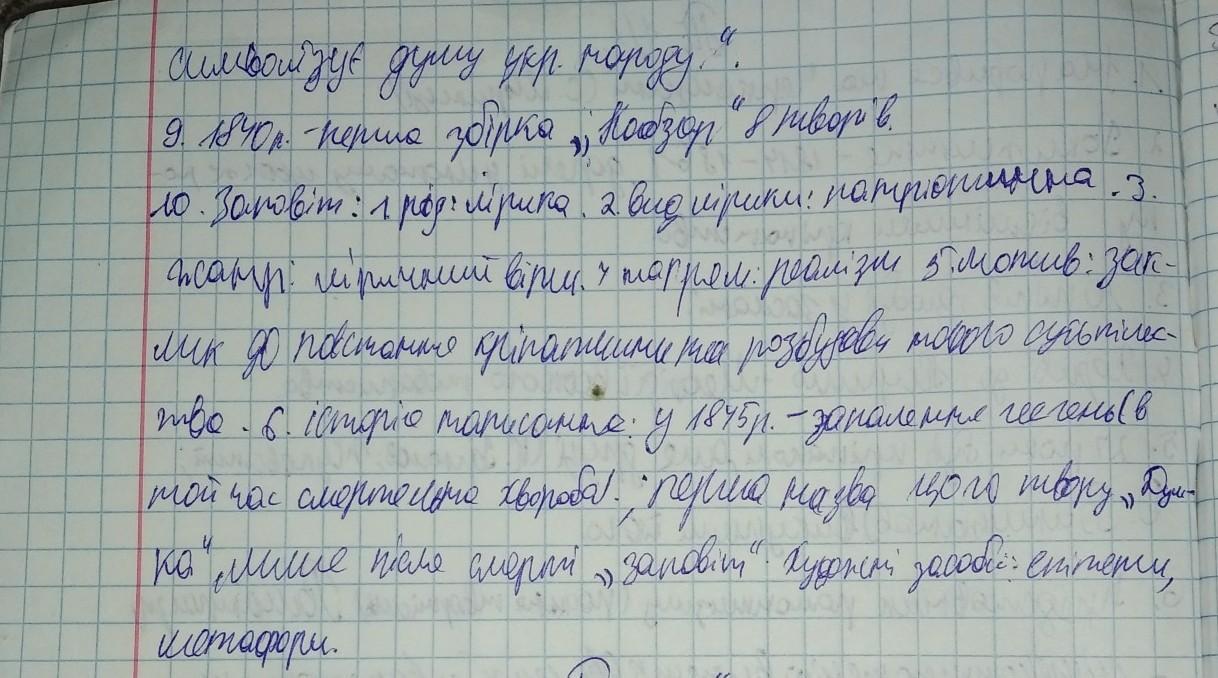 символізує душу укр. народу.“.
9. 1840р. - перша збірка „Кобзар“ 8 творів.
10. Заповіт: 1. рід: лірика. 2. вид лірики: патріотична. 3.
жанр: ліричний вірш. 4 напрям: реалізм 5. мотив: зак-
лик до повстання кріпаччини та розбудови нового суспільс-
тва. 6. історія написання: у 1845р. - запалення легень (в
той час смертельна хвороба). ; перша назва цього твору „Дум-
ка“, лише після смерті „заповіт“. Художні засоби: епітети,
метафори.